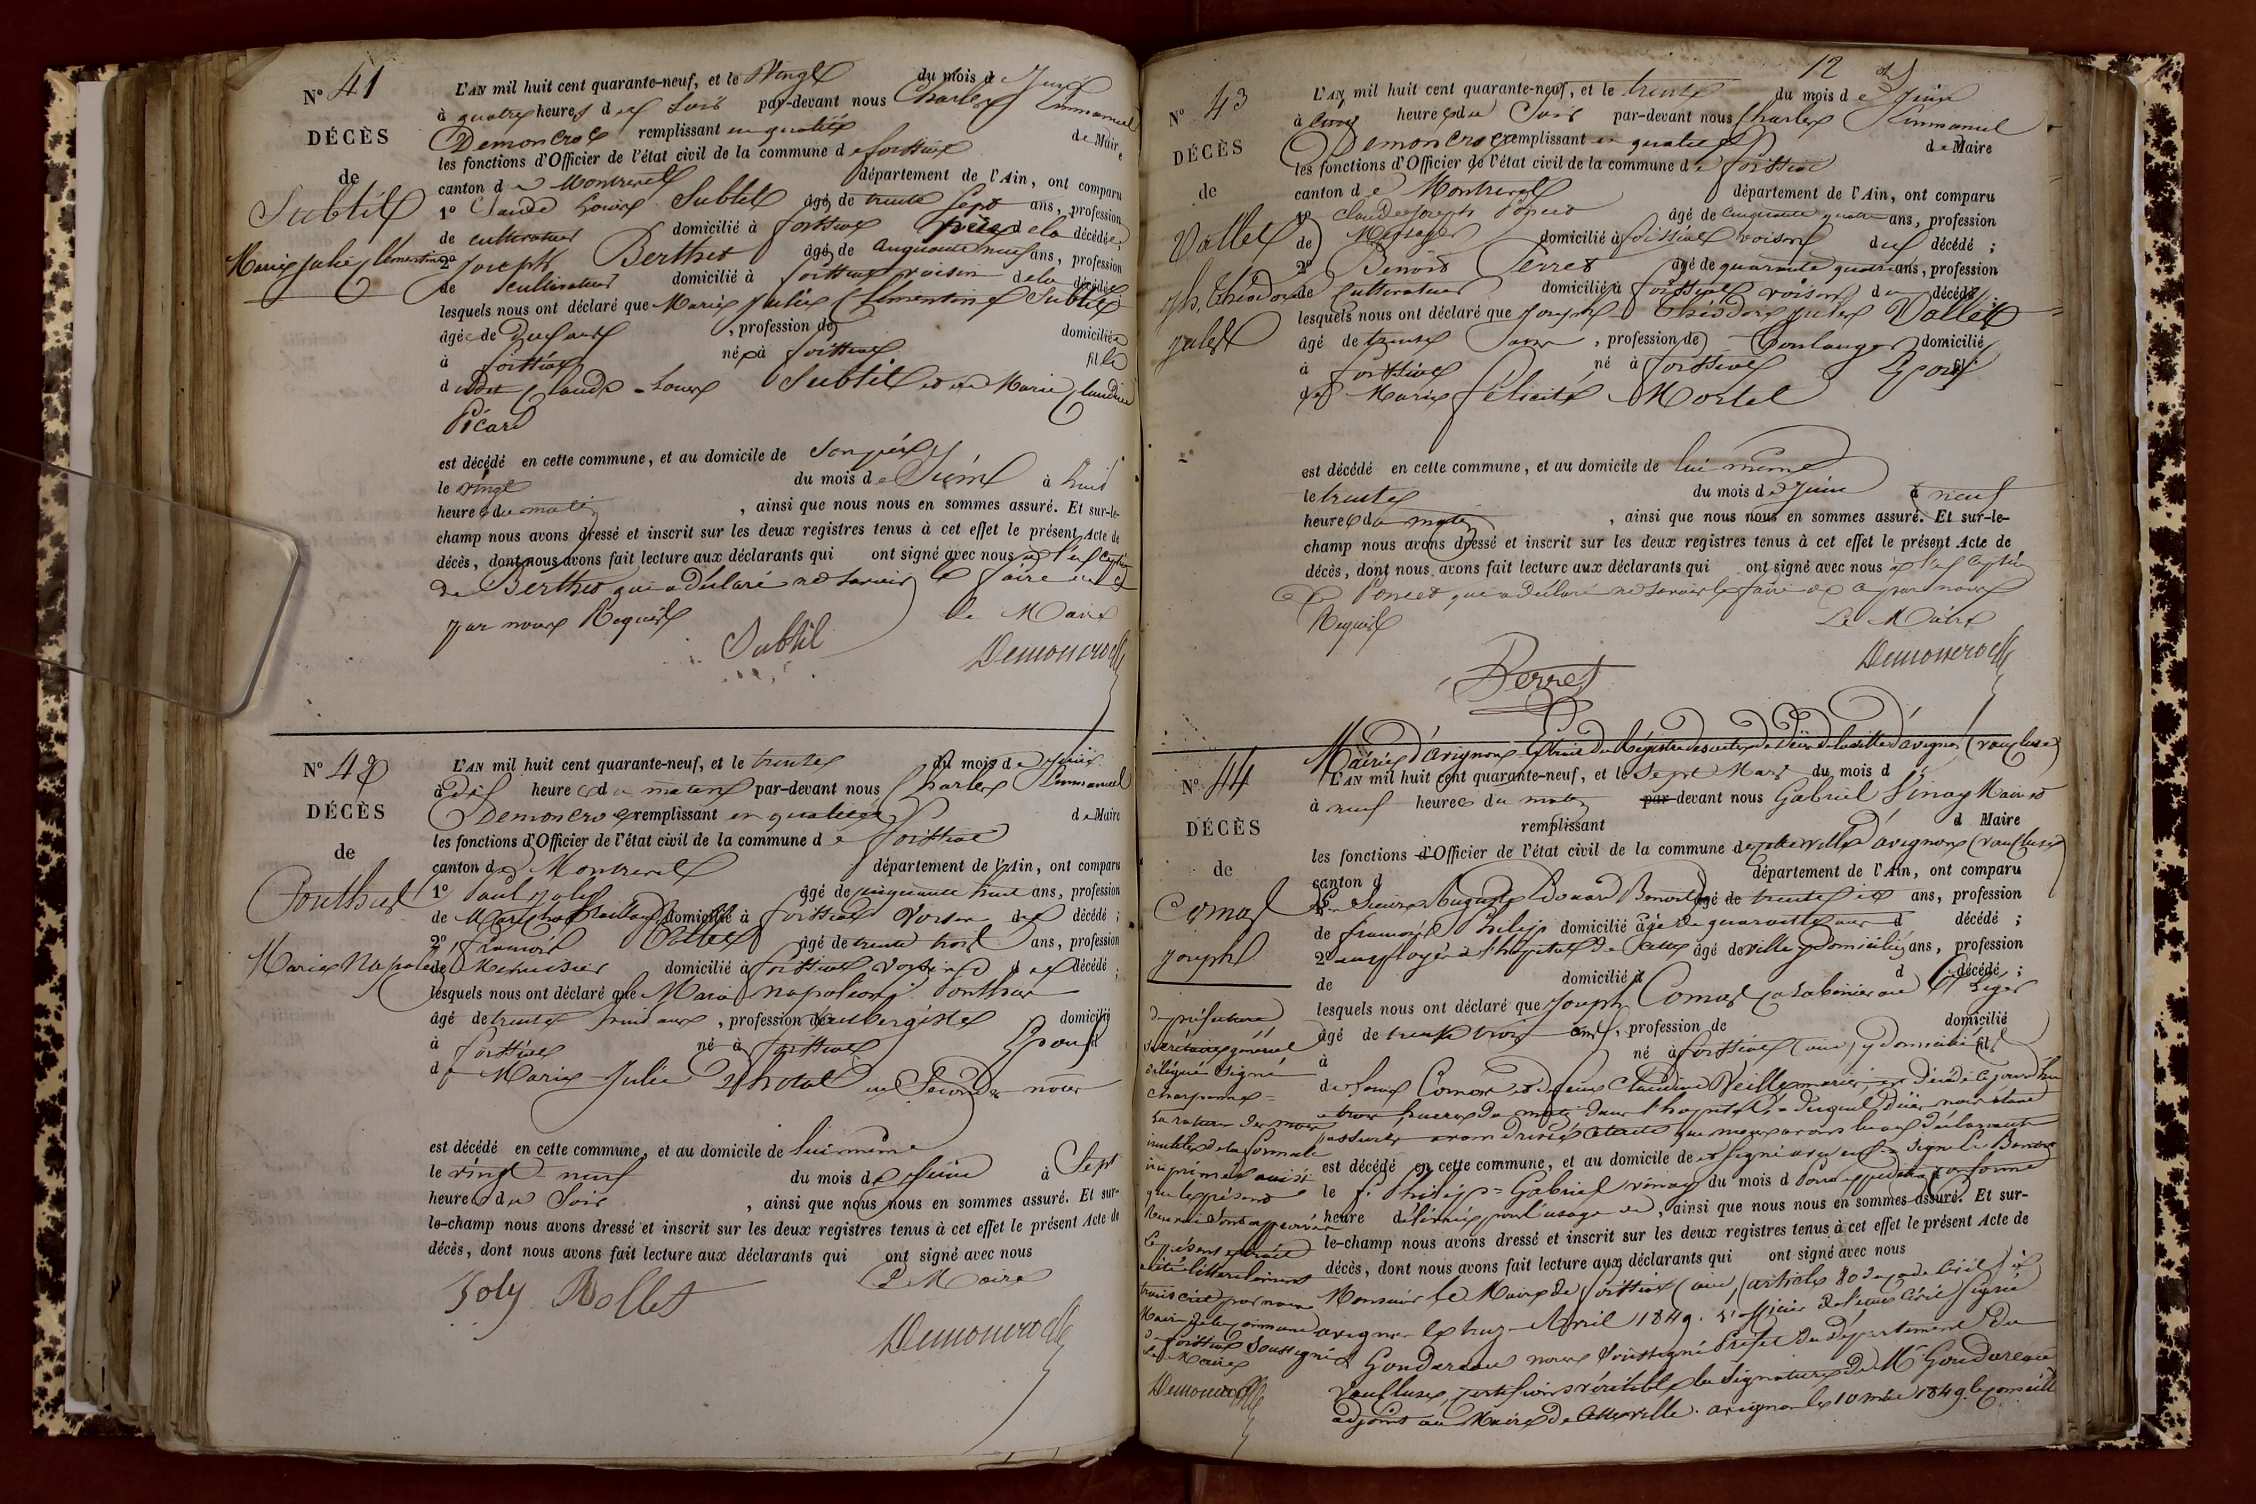 N° 41
DÉCÈS
de
Subtil
Marie Julie Clémentine
L'AN mil huit cent quarante-neuf, et le Vingt du mois de Juin
à quatre heures du soir par-devant nous Charles Emmanuel
Demoncroc remplissant en qualité de Maire
les fonctions d'Officier de l'état civil de la commune de foissiat
canton de Montrevel département de l'Ain, ont comparu
1° Claude Louis Subtil âgé de trente sept ans, profession
de cultivateur domicilié à foissiat père de la décédée;
2° Joseph Berthet âgé de cinquante neuf ans, profession
de cultivateur domicilié à foissiat voisin de la décédée
lesquels nous ont déclaré que Marie Julie Clémentine Subtil
âgée de deux ans, profession de domiciliée
à foissiat née à foissiat fille
dudit Claude-Louis Subtil et de Marie Claudine
Picard
est décédé en cette commune, et au domicile de son père
le vingt du mois de Juin à huit
heures du matin, ainsi que nous nous en sommes assuré. Et sur-le-
champ nous avons dressé et inscrit sur les deux registres tenus à cet effet le présent Acte de
décès, dont nous avons fait lecture aux déclarants qui ont signé avec nous à l'exception
de Berthet qui a déclaré ne savoir le faire de ce
par nous Requis
Le Maire
Subtil
Demoncroc
N° 42
DÉCÈS
de
Pouthus
Marie Napoléon
L'AN mil huit cent quarante-neuf, et le trente du mois de juin
à dix heures du matin par-devant nous Charles Emmanuel
Demoncroc remplissant en qualité de Maire
les fonctions d'Officier de l'état civil de la commune de foissiat
canton de Montrevel département de l'Ain, ont comparu
1° Paul Joly âgé de cinquante huit ans, profession
de Maréchal taillandier domicilié à foissiat voisin du décédé;
2° françois Bollet âgé de trente trois ans, profession
de Menuisier domicilié à foissiat voisin du décédé;
lesquels nous ont déclaré que Marie napoléon Pouthus
âgé de trente huit ans, profession d'aubergiste domicilié
à foissiat né à foissiat Epoux
de Marie-Julie en Secondes noces
est décédé en cette commune, et au domicile de lui même
le vingt-neuf du mois de Juin à Sept
heures du Soir, ainsi que nous nous en sommes assuré. Et sur-
le-champ nous avons dressé et inscrit sur les deux registres tenus à cet effet le présent Acte de
décès, dont nous avons fait lecture aux déclarants qui ont signé avec nous
Le Maire
Joly Bollet
Demoncroc
12
N° 43
DÉCÈS
de
Vallet
Jh. Théodore
Jules
L'AN mil huit cent quarante-neuf, et le trente du mois de Juin
à cinq heures du Soir par-devant nous Charles Emmanuel
Demoncroc remplissant en qualité de Maire
les fonctions d'Officier de l'état civil de la commune de foissiat
canton de Montrevel département de l'Ain, ont comparu
1° Claude Joseph Poncet âgé de cinquante quatre ans, profession
de Messager domicilié à foissiat voisin du décédé;
2° Benoit Perret âgé de quarante quatre ans, profession
de Cultivateur domicilié à foissiat voisin du décédé
lesquels nous ont déclaré que Joseph-Théodore Jules Vallet
âgé de trente ans, profession de Boulanger domicilié
à foissiat né à foissiat Epoux
de Marie félicité Mortel
est décédé en cette commune, et au domicile de lui même
le trente du mois de Juin à neuf
heures du matin, ainsi que nous nous en sommes assuré. Et sur-le-
champ nous avons dressé et inscrit sur les deux registres tenus à cet effet le présent Acte de
décès, dont nous avons fait lecture aux déclarants qui ont signé avec nous à l'exception
de Poncet qui a déclaré ne savoir le faire de ce par nous
Requis
Le Maire
Perret
Demoncroc
Mairie d'avignon Extrait du Registre des actes de décès de la ville d'avignon (vaucluse)
N° 44
DÉCÈS
de
Comas
Joseph
L'AN mil huit cent quarante-neuf, et le Sept Mars du mois d
à neuf heures du matin par-devant nous Gabriel Vinay Maire et
remplissant d Maire
les fonctions d'Officier de l'état civil de la commune de cette ville d'avignon (vaucluse)
canton d département de l'Ain, ont comparu
1° Sieurs Auguste Edouard Benoit âgé de trente six ans, profession
de françois Philip domicilié âgé de quarante ans d décédé;
2° employés à l'hopital de cette âgé de ville y domiciliés ans, profession
de domicilié à d décédé;
lesquels nous ont déclaré que Joseph Comas carabinier au léger
âgé de trente trois ans, profession de domicilié
à né à foissiat (ain) y domicilié fils
de Louis Comas et de feue Claudine Veille mariés, est décédé ce jourd'hui
à trois heures du matin dans l'hopital, duquel décès nous étant
assurés avons dressé acte que nous avons lu aux déclarants
est décédé en cette commune, et au domicile de et signé avec eux signé Ed Benoit
le f. Philip = Gabriel vinay du mois d Pour expédition conforme
heure délivrée pour l'usage de, ainsi que nous nous en sommes assuré. Et sur-
le-champ nous avons dressé et inscrit sur les deux registres tenus à cet effet le présent Acte de
décès, dont nous avons fait lecture aux déclarants qui ont signé avec nous
Monsieur le Maire de foissiat (ain) (article 80 du code Civil)
avignon le Avril 1849. L'officier de l'état Civil signé
Goudareau nous soussigné Préfet du département du
Vaucluse, certifions véritable la Signature de Mr Goudareau
adjoint au Maire de cette ville. avignon le 10 mai 1849. le conseiller
de préfecture
Secrétaire général
délégué signé
Charpenne =
La rature des mots
inutiles de la formule
imprimée ainsi
que le présent
Renvoi sont approuvés
Le présent extrait
a été littéralement
transcrit par nous
Maire de la commune
de foissiat Soussigné
Le Maire
Demoncroc